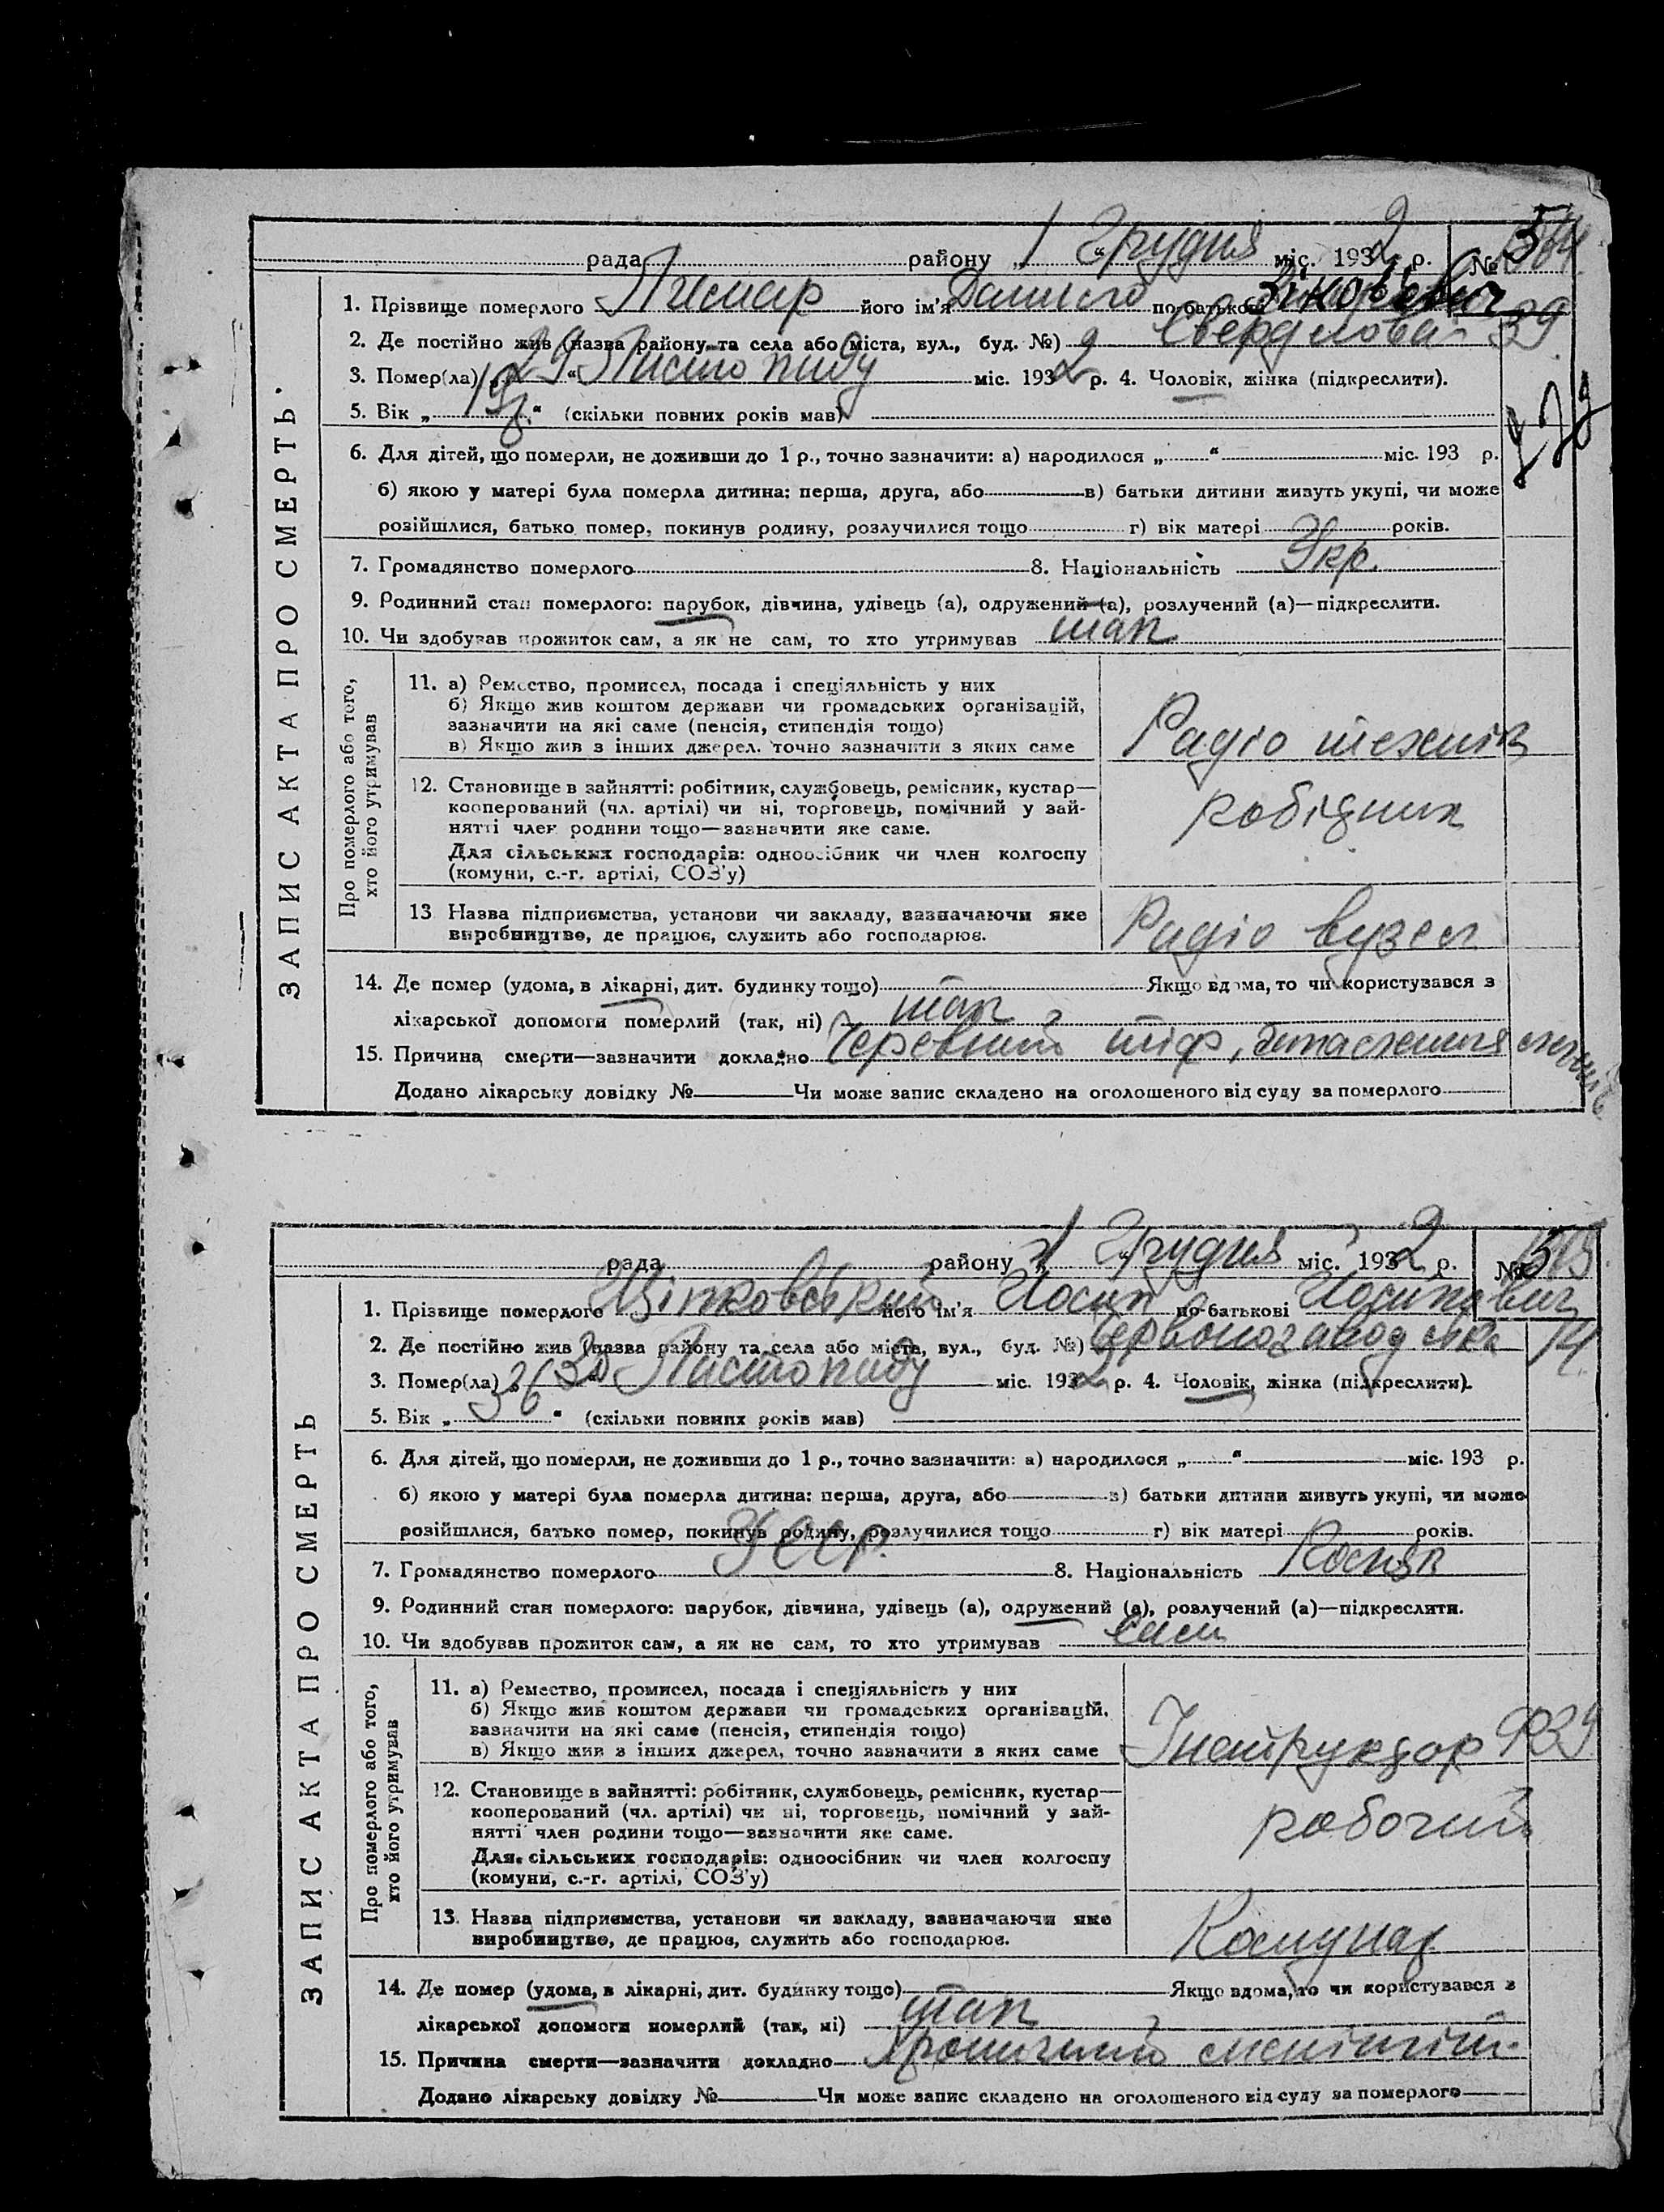 ЗАПИС АКТА ПРО СМЕРТЬ
рада району „ 1 “ Грудня міс. 1932 р. №
1. Прізвище померлого його ім'я Данило по-батькові Зіновьевич
2. Де постійно жив (назва району та села або міста, вул., буд. №) Свердлова 39
3. Помер(ла) „ 29 “ Листопаду міс. 1932 р. 4. Чоловік, жінка (підкреслити).
5. Вік „ 19 “ (скільки повних років мав)
6. Для дітей, що померли, не доживши до 1 р., точно зазначити: а) народилося „ “ міс. 193 р.
б) якою у матері була померла дитина: перша, друга, або в) батьки дитини живуть укупі, чи може
розійшлися, батько помер, покинув родину, розлучилися тощо г) вік матері років.
7. Громадянство померлого 8. Національність Укр.
9. Родинний стан померлого: парубок, дівчина, удівець (а), одружений (а), розлучений (а)—підкреслити.
10. Чи здобував прожиток сам, а як не сам, то хто утримував так
Про померлого або того, хто його утримував
11. а) Ремество, промисел, посада і спеціяльність у них
б) Якщо жив коштом держави чи громадських організацій,
зазначити на які саме (пенсія, стипендія тощо)
в) Якщо жив з інших джерел. точно зазначити з яких саме
Радіо технік
12. Становище в зайнятті: робітник, службовець, ремісник, кустар—
кооперований (чл. артілі) чи ні, торговець, помічний у зай-
нятті член родини тощо—зазначити яке саме.
Для сільських господарів: одноосібник чи член колгоспу
(комуни, с.-г. артілі, СОЗ'у)
робітник
13 Назва підприємства, установи чи закладу, зазначаючи яке
виробництво, де працює, служить або господарює.
Радіо вузел
14. Де помер (удома, в лікарні, дит. будинку тощо) Якщо вдома, то чи користувався з
лікарської допомоги померлий (так, ні) так
15. Причина смерти—зазначити докладно Черевний тіф,
Додано лікарську довідку № Чи може запис складено на оголошеного від суду за померлого
ЗАПИС АКТА ПРО СМЕРТЬ
рада району „ 1 “ Грудня міс. 1932 р. №
1. Прізвище померлого його ім'я Йосип по-батькові Йосипович
2. Де постійно жив (назва району та села або міста, вул., буд. №) Червонозаводська 14
3. Помер(ла) „ 30 “ Листопаду міс. 1932 р. 4. Чоловік, жінка (підкреслити).
5. Вік „ 36 “ (скільки повних років мав)
6. Для дітей, що померли, не доживши до 1 р., точно зазначити: а) народилося „ “ міс. 193 р.
б) якою у матері була померла дитина: перша, друга, або в) батьки дитини живуть укупі, чи може
розійшлися, батько помер, покинув родину, розлучилися тощо г) вік матері років.
7. Громадянство померлого УССР. 8. Національність
9. Родинний стан померлого: парубок, дівчина, удівець (а), одружений (а), розлучений (а)—підкреслити.
10. Чи здобував прожиток сам, а як не сам, то хто утримував Сам
Про померлого або того, хто його утримував
11. а) Ремество, промисел, посада і спеціяльність у них
б) Якщо жив коштом держави чи громадських організацій,
зазначити на які саме (пенсія, стипендія тощо)
в) Якщо жив з інших джерел, точно зазначити з яких саме
Інструктор ФЗУ
12. Становище в зайнятті: робітник, службовець, ремісник, кустар—
кооперований (чл. артілі) чи ні, торговець, помічний у зай-
нятті член родини тощо—зазначити яке саме.
Для сільських господарів: одноосібник чи член колгоспу
(комуни, с.-г. артілі, СОЗ'у)
робочий
13. Назва підприємства, установи чи закладу, зазначаючи яке
виробництво, де працює, служить або господарює.
Комунар
14. Де помер (удома, в лікарні, дит. будинку тощо) Якщо вдома, то чи користувався з
лікарської допомоги померлий (так, ні) так
15. Причина смерти—зазначити докладно Хронічний менінгіт.
Додано лікарську довідку № Чи може запис складено на оголошеного від суду за померлого